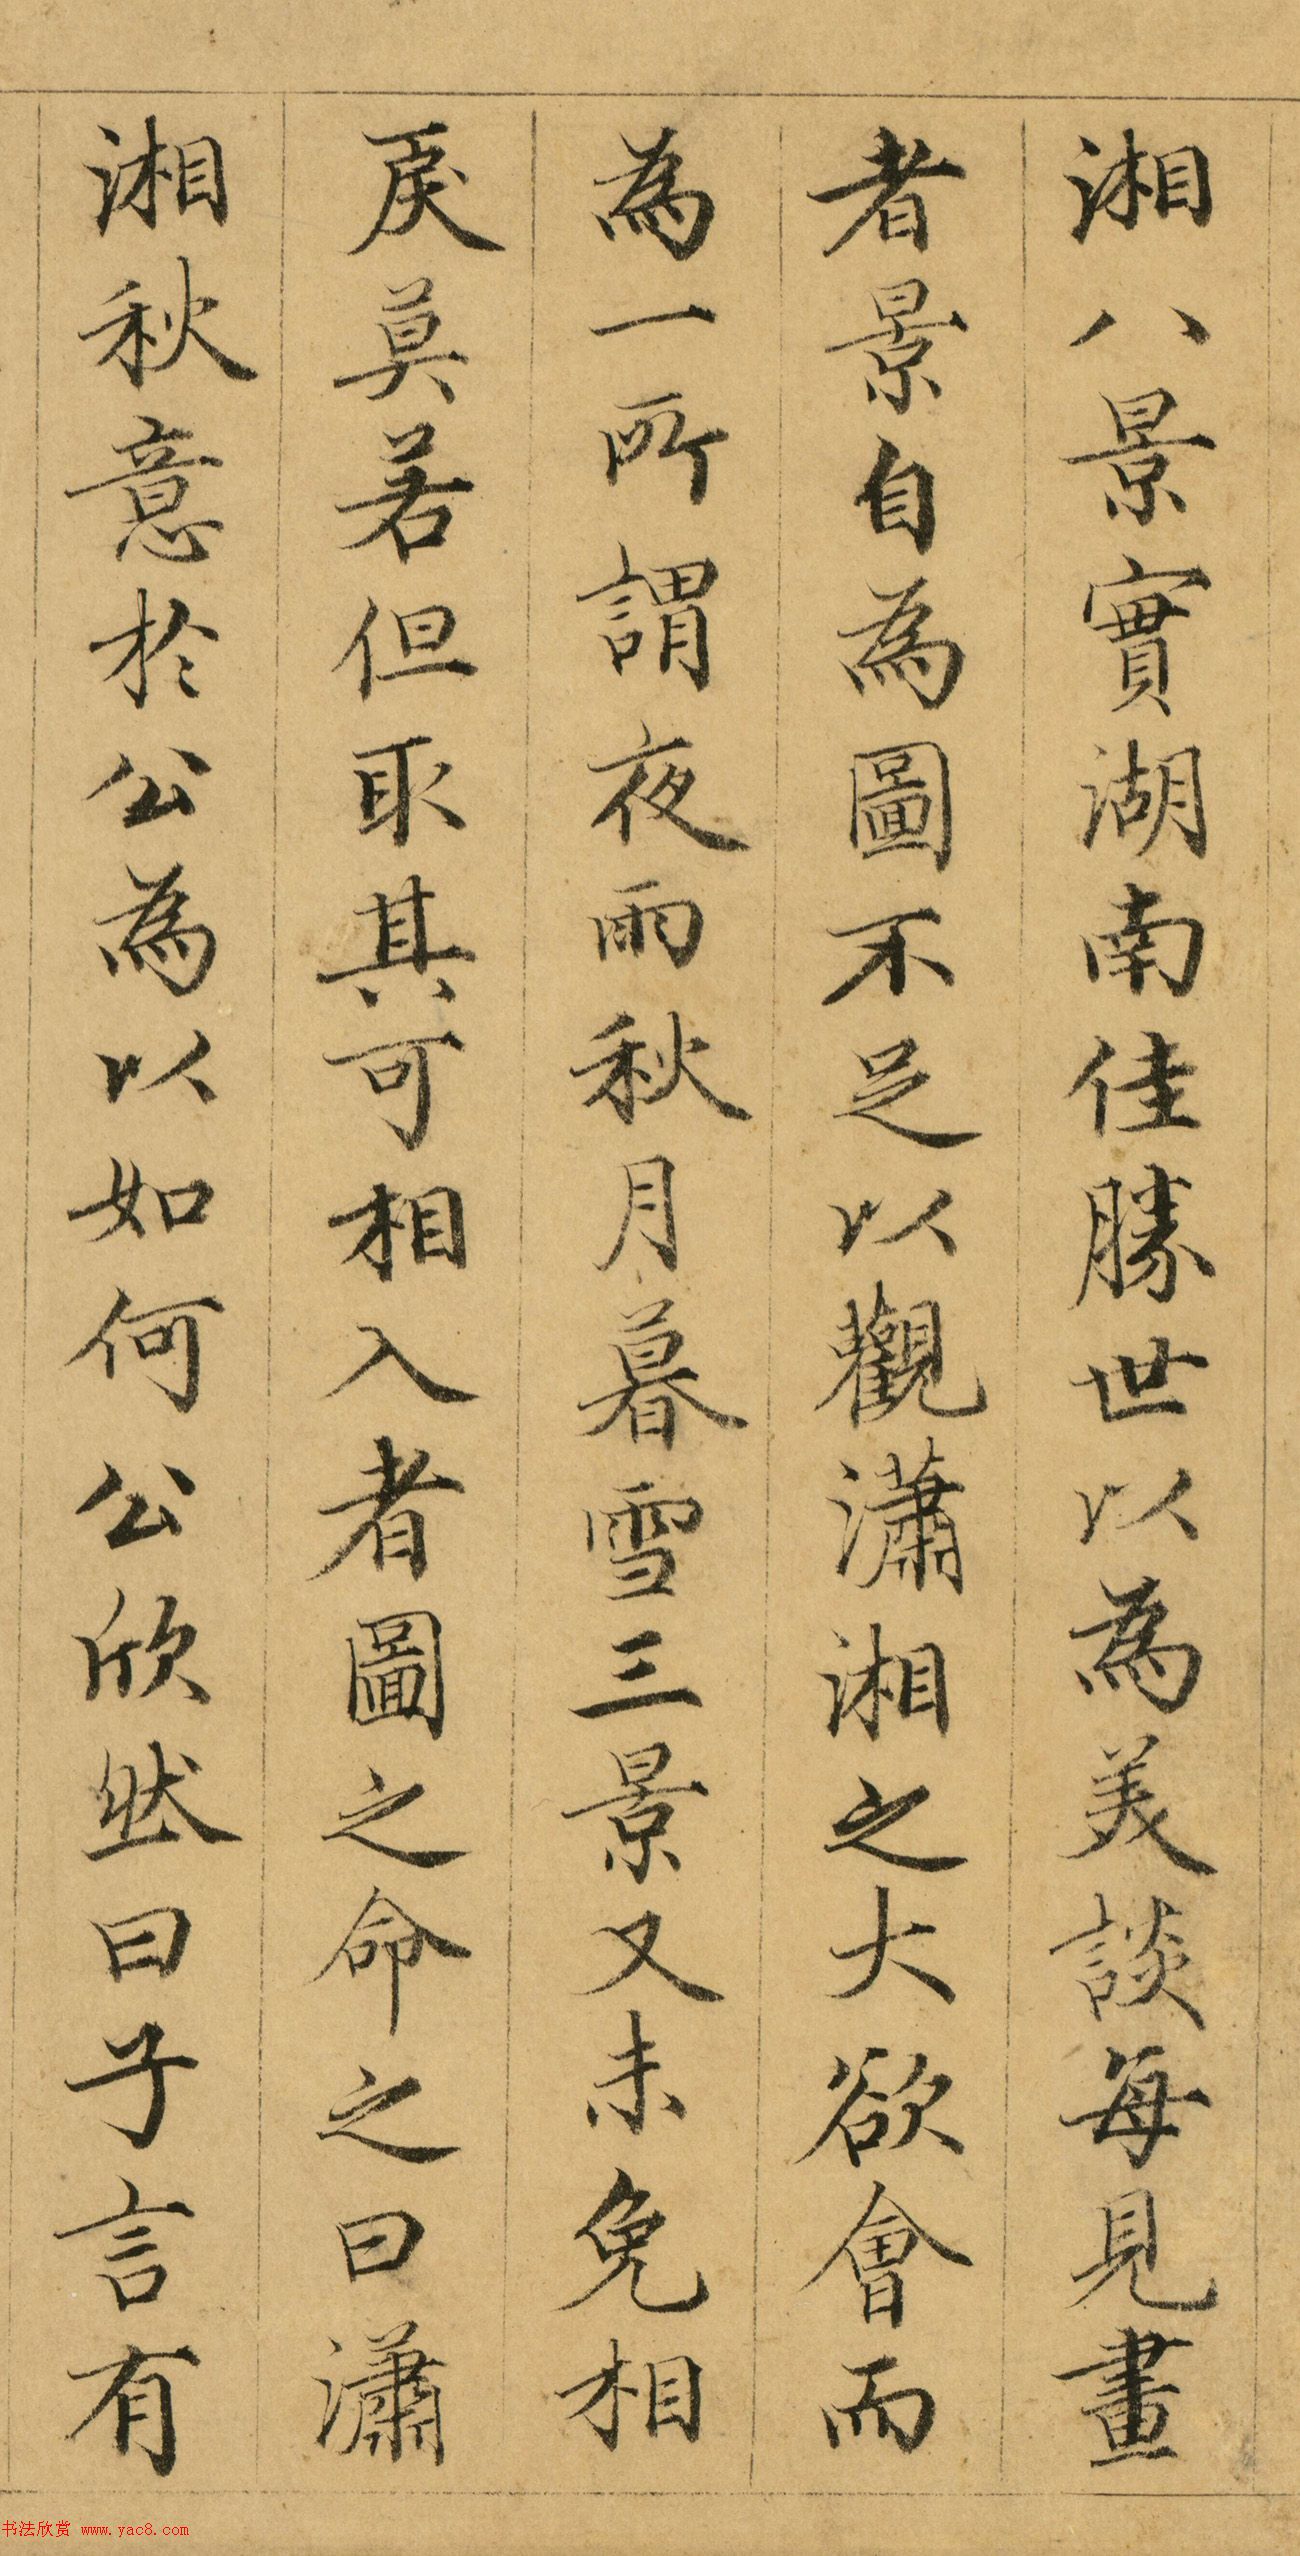 湘八景實湖南佳勝世以為美談每見畫
者景自為圖不足以觀瀟湘之大欲會而
為一所謂夜雨秋月暮雪三景又未免相
戾莫若但取其可相入者圖之命之曰瀟
湘秋意於公為以如何公欣然曰子言有
书法欣赏 www.yac8.com